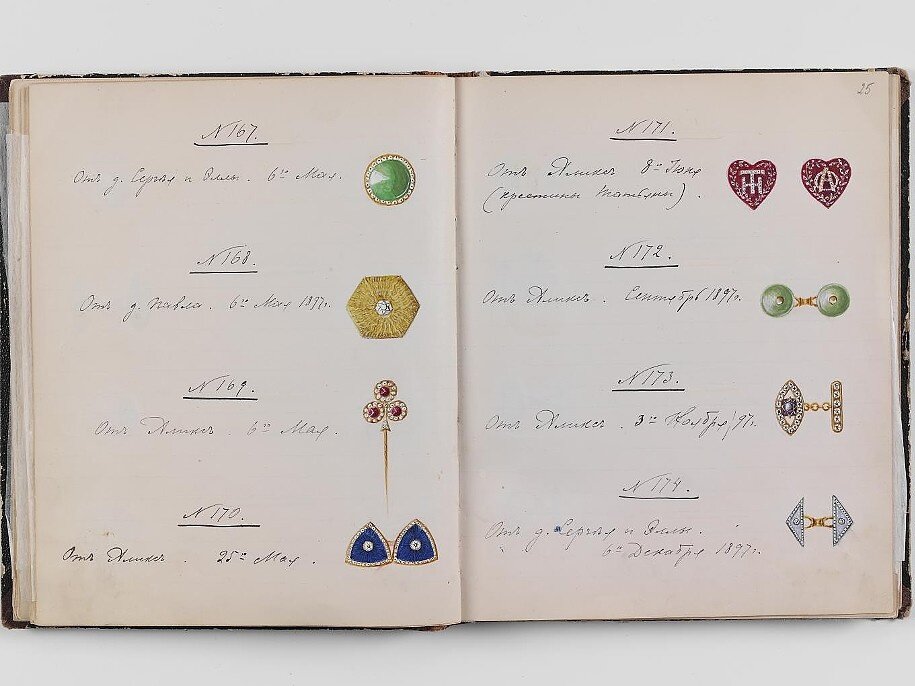 № 167.
Отъ д. Сергѣя и Эллы. 6го Мая.
№ 168.
Отъ д. Павла. 6го Мая 1897г.
№ 169.
Отъ Аликсъ. 6го Мая.
№ 170.
Отъ Аликсъ. 25го Мая.
25
№ 171.
Отъ Аликсъ 8го Іюня
(крестины Татьяны).
ТН
А
№ 172.
Отъ Аликсъ. Сентябрь 1897г.
№ 173.
Отъ Аликсъ. 3го Ноября/97г.
№ 174.
Отъ д. Сергѣя и Эллы.
6го Декабря 1897г.